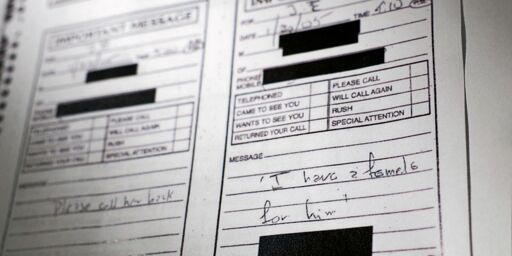 IMPORTANT MESSAGE
TELEPHONED PLEASE CALL
CAME TO SEE YOU WILL CALL AGAIN
WANTS TO SEE YOU RUSH
SPECIAL ATTENTION
MESSAGE
Please call her back
FOR J.E
DATE 1/20/05 TIME
M
OF
PHONE
MOBILE
TELEPHONED PLEASE CALL
CAME TO SEE YOU WILL CALL AGAIN
WANTS TO SEE YOU RUSH
RETURNED YOUR CALL SPECIAL ATTENTION
MESSAGE
"I have a female
for him"